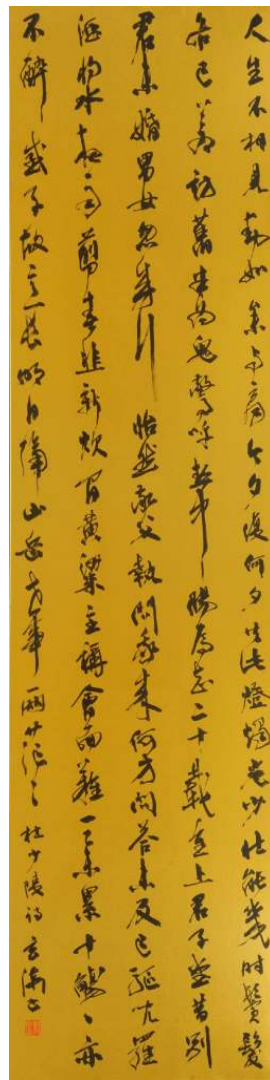 人生不相見動如參與商今夕復何夕共此燈燭光少壯能幾時鬢髮
各已蒼訪舊半為鬼驚呼熱中腸焉知二十載重上君子堂昔別
君未婚男女忽成行怡然敬父執問我來何方問答未及已驅兒羅
酒漿夜雨剪春韭新炊間黃粱主稱會面難一舉累十觴〻亦
不醉感子故意長明日隔山岳世事兩茫〻 杜少陵詩